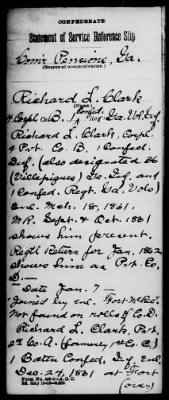 CONFEDERATE
Statement of Service Reference Slip
Com'r Pensions, Ga.
(Source of communication.)
Richard L. Clark
(Name.)
Confed.
Richard L. Clark, Corpl
& Pvt. Co. B, 1 Confed.
Inf. (also designated 36
(Villepigue's) Ga. Inf. and
1 Confed. Regt. Ga. Vols)
Enl. Mch. 18, 1861.
M.R. Sept. & Oct. 1861
shows him present.
Regtl Return for Jan. 1862
shows him as Pvt. Co.
D—
"Date Jan. 7 —
Joined by enl. Fort McRee".
Not found on rolls of Co. D.
Richard L. Clark, Pvt.
2d Co. A (formerly 1st Co. C)
1 Battn Confed. Inf. Enl.
Dec. 27, 1861 at Fort
(over)